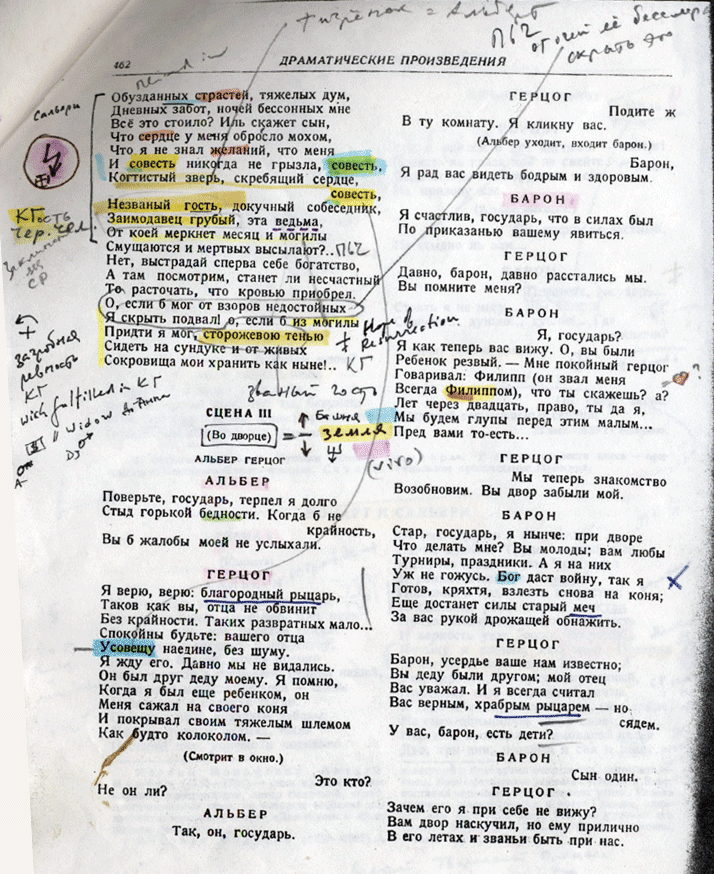 + изрёнок = Альбер
ПЬ2
скрыть это
462
ДРАМАТИЧЕСКИЕ ПРОИЗВЕДЕНИЯ
Обузданных страстей, тяжелых дум,
Дневных забот, ночей бессонных мне
Всё это стоило? Иль скажет сын,
Что сердце у меня обросло мохом,
Что я не знал желаний, что меня
И совесть никогда не грызла, совесть,
Когтистый зверь, скребящий сердце,
совесть,
Незваный гость, докучный собеседник,
Заимодавец грубый, эта ведьма,
От коей меркнет месяц и могилы
Смущаются и мертвых высылают?..
ПЬ2
Нет, выстрадай сперва себе богатство,
А там посмотрим, станет ли несчастный
То расточать, что кровью приобрел.
О, если б мог от взоров недостойных
Я скрыть подвал! о, если б из могилы
Придти я мог, сторожевою тенью
Сидеть на сундуке и от живых
Сокровища мои хранить как ныне!..
КГ
Сальери
КГость
чер. чел.
СР
загробная
ревность
КГ
wish fulfilled in КГ
Hope
Resurrection.
званый гость
СЦЕНА III
(Во дворце)
=
Башня
земля
(vivo)
АЛЬБЕР ГЕРЦОГ
АЛЬБЕР
Поверьте, государь, терпел я долго
Стыд горькой бедности. Когда б не
крайность,
Вы б жалобы моей не услыхали.
ГЕРЦОГ
Я верю, верю: благородный рыцарь,
Таков как вы, отца не обвинит
Без крайности. Таких развратных мало...
Спокойны будьте: вашего отца
Усовещу наедине, без шуму.
Я жду его. Давно мы не видались.
Он был друг деду моему. Я помню,
Когда я был еще ребенком, он
Меня сажал на своего коня
И покрывал своим тяжелым шлемом
Как будто колоколом. —
(Смотрит в окно.)
Это кто?
Не он ли?
АЛЬБЕР
Так, он, государь.
ГЕРЦОГ
Подите ж
В ту комнату. Я кликну вас.
(Альбер уходит, входит барон.)
Барон,
Я рад вас видеть бодрым и здоровым.
БАРОН
Я счастлив, государь, что в силах был
По приказанью вашему явиться.
ГЕРЦОГ
Давно, барон, давно расстались мы.
Вы помните меня?
БАРОН
Я, государь?
Я как теперь вас вижу. О, вы были
Ребенок резвый. — Мне покойный герцог
Говаривал: Филипп (он звал меня
Всегда Филиппом), что ты скажешь? а?
Лет через двадцать, право, ты да я,
Мы будем глупы перед этим малым...
Пред вами то-есть...
ГЕРЦОГ
Мы теперь знакомство
Возобновим. Вы двор забыли мой.
БАРОН
Стар, государь, я нынче: при дворе
Что делать мне? Вы молоды; вам любы
Турниры, праздники. А я на них
Уж не гожусь. Бог даст войну, так я
Готов, кряхтя, взлезть снова на коня;
Еще достанет силы старый меч
За вас рукой дрожащей обнажить.
ГЕРЦОГ
Барон, усердье ваше нам известно;
Вы деду были другом; мой отец
Вас уважал. И я всегда считал
Вас верным, храбрым рыцарем — но
сядем.
У вас, барон, есть дети?
БАРОН
Сын один.
ГЕРЦОГ.
Зачем его я при себе не вижу?
Вам двор наскучил, но ему прилично
В его летах и званьи быть при нас.